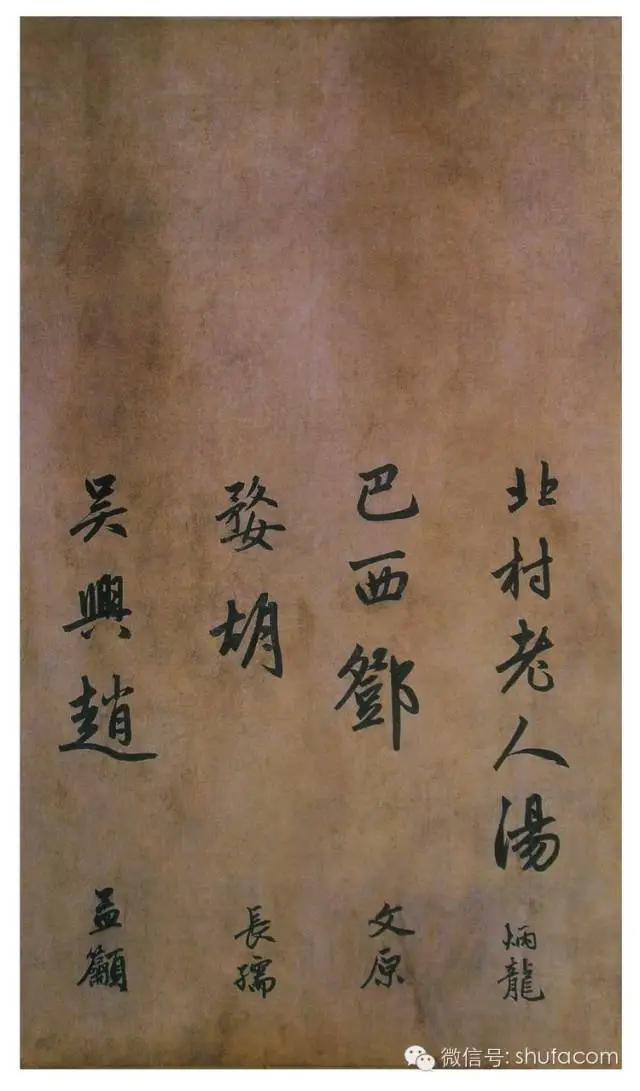 北村老人湯炳龍
巴西鄧文原
婺胡長孺
吴興趙孟籲
微信号: shufacom